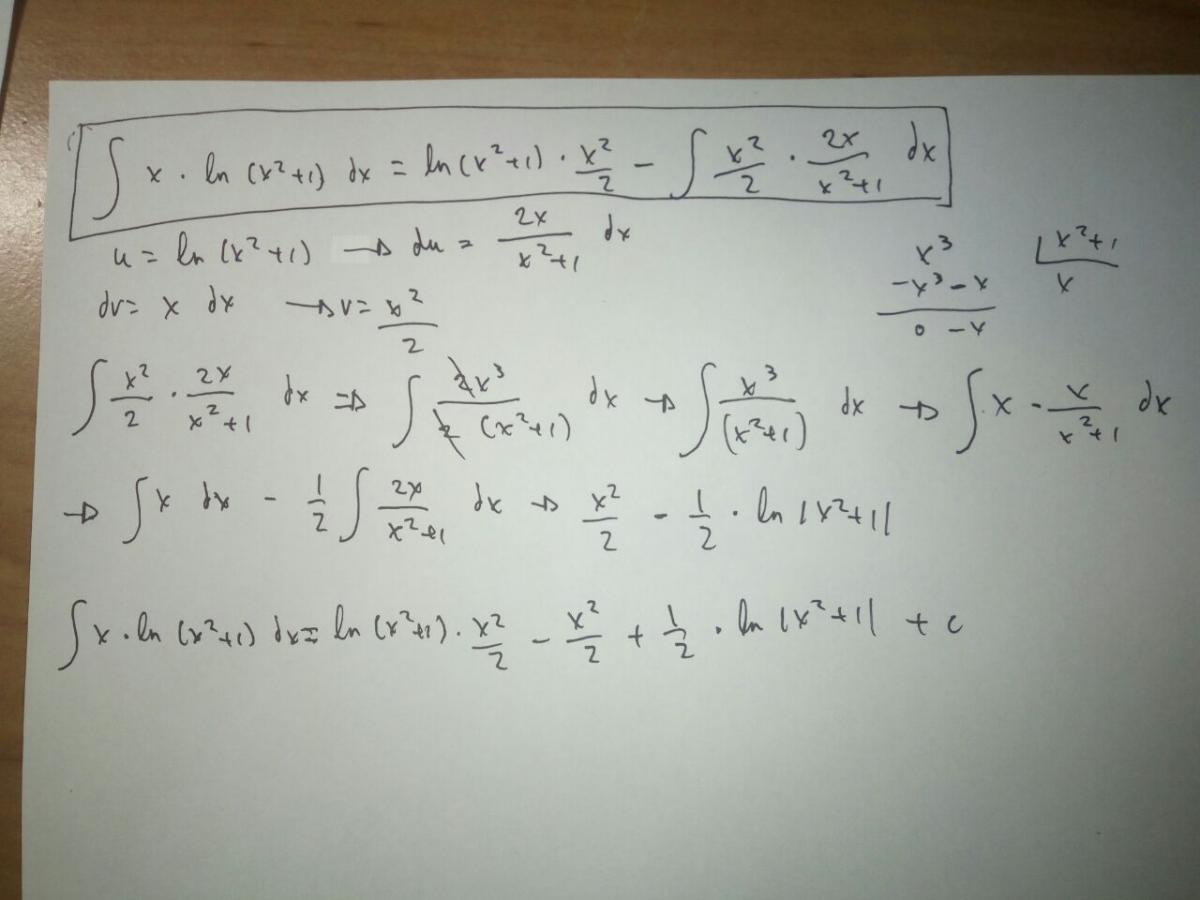 ∫ x · ln (x²+1) dx = ln (x²+1) · x²/2 − ∫ x²/2 · 2x/(x²+1) dx
u = ln (x²+1) → du = 2x/(x²+1) dx
dv = x dx → v = x²/2
x³ | x²+1
−x³ − x | x
0 − x
∫ x²/2 · 2x/(x²+1) dx ⇒ ∫ 2x³/(2 (x²+1)) dx → ∫ x³/(x²+1) dx → ∫ x − x/(x²+1) dx
→ ∫ x dx − 1/2 ∫ 2x/(x²+1) dx → x²/2 − 1/2 · ln |x²+1|
∫ x · ln (x²+1) dx = ln (x²+1) · x²/2 − x²/2 + 1/2 · ln |x²+1| + c